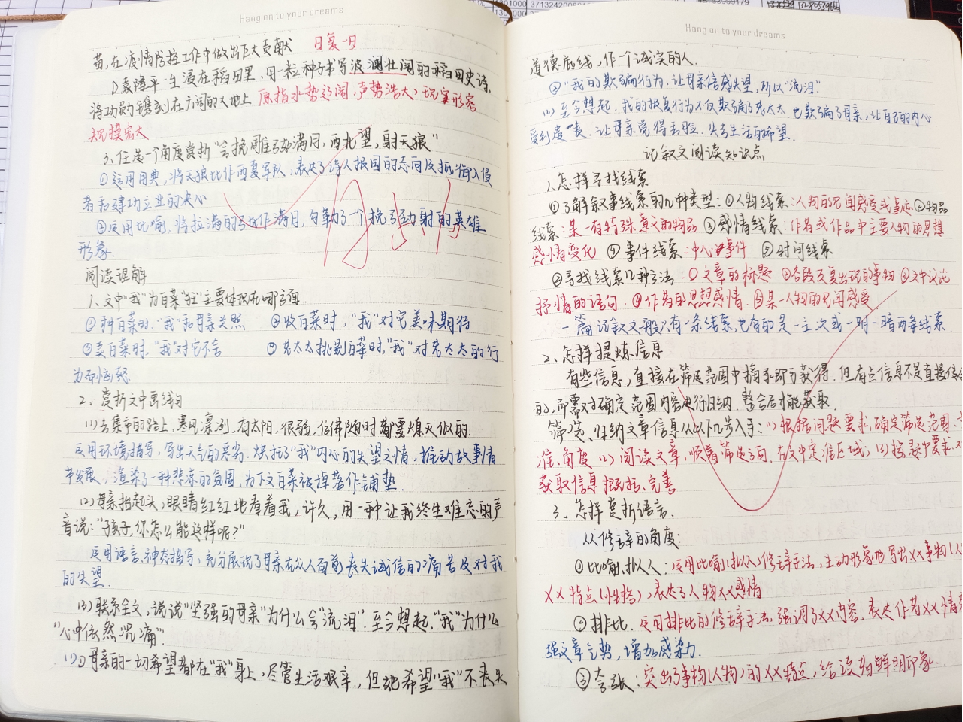 Hang on to your dreams
苗,在疫情防控工作中做出巨大贡献 日复一日
2)袁隆平一生浸在稻田里,用一粒种子书写波澜壮阔的稻田史诗
将功勋镌刻在广阔的大地上 原指水势起阔,声势浩大;现实形容
规模宏大
3.任选一个角度赏析"会挽雕弓如满月,西北望,射天狼"
①运用用典,将天狼比作西夏军队,表达了诗人报国的志向及抵御入侵
者和建功立业的决心
②运用比喻,将拉满的弓比作满月,勾勒了一个挽弓劲射的英雄
形象
阅读理解
1.文中"我"为白菜"狂"主要体现在哪方面
①种白菜时,"我"和母亲关照 ②收白菜时,"我"对它美味期待
③卖白菜时,"我"对它不舍 ④老太太挑剔白菜时,"我"对老太太的行
为而恼怒
2.赏析文中画线句
(1)去集市的路上,寒风凛冽,有太阳,很弱,仿佛随时都要熄灭似的.
运用环境描写,写出天气的严寒,烘托了"我"内心的失望之情,推动故事情
节发展,渲染了一种悲凉的氛围,为下文白菜被误卖作铺垫.
(2)母亲抬起头,眼睛红红地看着我,许久,用一种让我终生难忘的声
音说:"孩子,你怎么能这样呢?"
运用语言、神态描写,充分展现了母亲在众人面前丧失诚信的心痛苦及对我
的失望.
(3)联系全文,说说"坚强的母亲"为什么会"流泪".至今想起,"我"为什么
"心中依然沉痛"
(1)①母亲的一切希望都在"我"身上,尽管生活艰辛,但她希望"我"不丧失
Hang on to your dreams
道德底线,作个诚实的人.
②"我"的欺骗行为,让母亲倍感失望,所以"流泪"
(2)至今想起,我的报复行为不仅欺骗了老太太,也欺骗了母亲,让自己的内心
受到虐袭,让母亲觉得丢脸,失去生活的希望.
记叙文阅读知识点
1.怎样寻找线索
①了解叙事线索的几种类型:①人物线索:人物的见闻感受或事迹 ②物品
线索:某一有特殊意义的物品 ③感情线索:作者或作品中主要人物的思想
感情变化 ④事件线索:中心事件 ⑤时间线索
②寻找线索几种方法 ①文章的标题 ②各段反复出现的事物 ③文中议论
抒情的语句 ④作者的思想感情 ⑤某一人物的见闻感受
一篇记叙文一般只有一条线索,也有的是一主一次或一明一暗两条线索
2.怎样提炼信息
有些信息,直接在筛选范围中摘录即可获得,但有些信息不是直接
的,所需对确定范围内容进行归纳,整合后才能获取
筛选、归纳文章信息从以下几步入手:(1)根据问题要求,确定筛选范围、
住角度 (2)阅读文章,顺着筛选方向,在文中定准区域 (3)按录中要求对
获取信息概括、完善
3.怎样赏析语言.
从修辞的角度:
①比喻、拟人:运用比喻(拟人)修辞手法,生动形象地写出XX事物
XX特点(性格),表达了人物XX感情
②排比:运用排比的修辞手法,强调了XX内容,表达作者XX情
强文章气势,增加感染力.
③夸张:突出了事物(人物)的XX特点,给读者鲜明印象